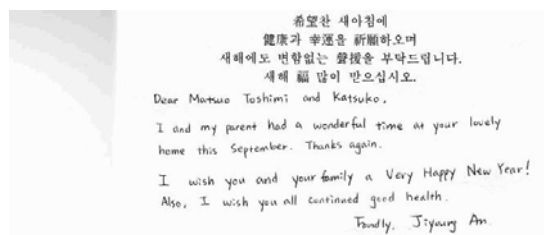 希望찬 새아침에
健康과 幸運을 祈願하오며
새해에도 변함없는 聲援을 부탁드립니다.
새해 福 많이 받으십시오.
Dear Matsuo Toshimi and Katsuko,
I and my parent had a wonderful time at your lovely
home this September. Thanks again.
I wish you and your family a Very Happy New Year!
Also, I wish you all continued good health.
Fondly, Jiyoung An